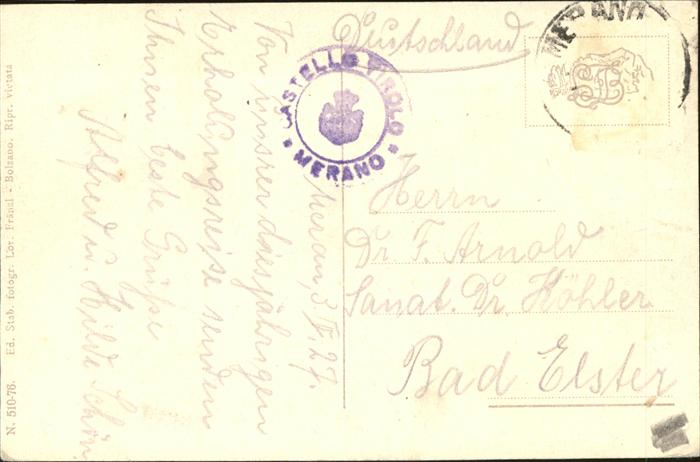 Deutschland
MERANO
CASTELLO TIROLO
* MERANO *
Meran, 3. V. 27.
Von unsrer diesjährigen
Erholungsreise senden
Ihnen beste Grüße
Alfred u. Hilde Schön
Herrn
Dr. F. Arnold
Sanat. Dr. Köhler
Bad Elster
N. 510-76. Ed. Stab. fotogr. Lor. Fränzl - Bolzano. Ripr. vietata